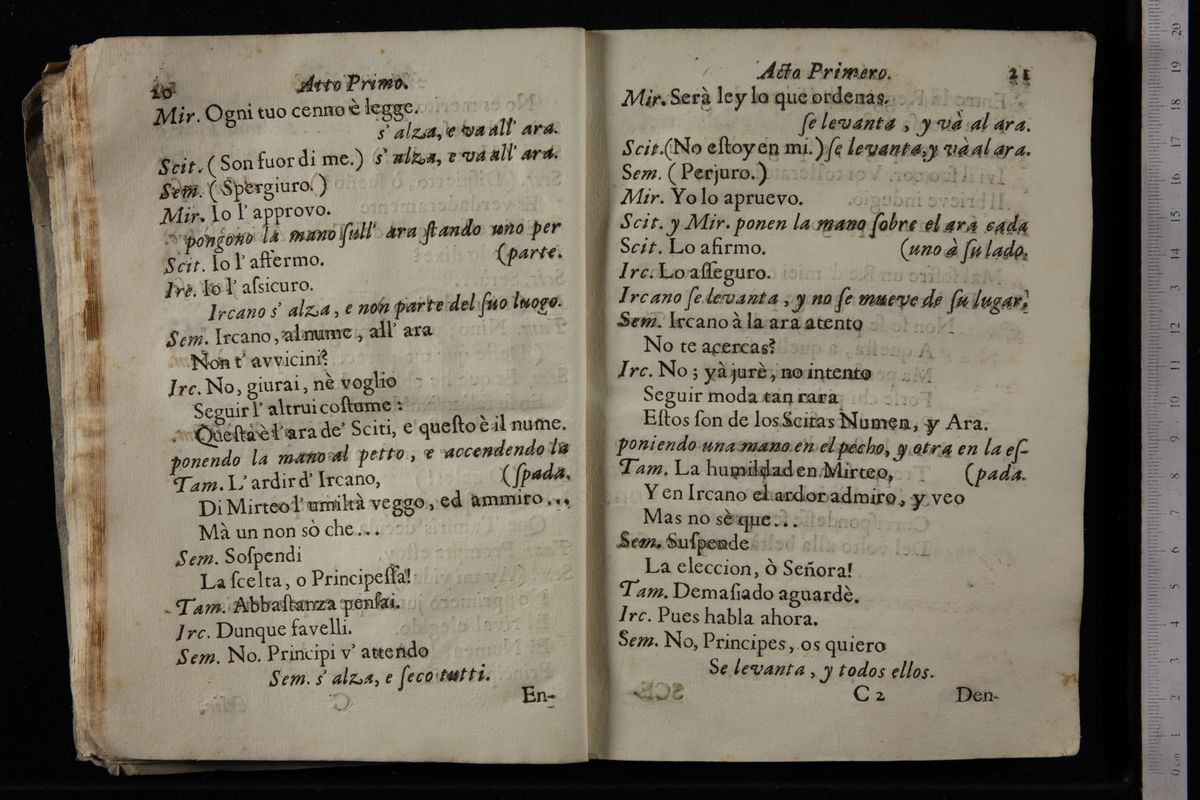 20 Atto Primo.
Mir. Ogni tuo cenno è legge.
s' alza, e va all' ara.
Scit. (Son fuor di me.) s' alza, e va all' ara.
Sem. (Spergiuro.)
Mir. Io l' approvo.
pongono la mano ſull' ara ſtando uno per
Scit. Io l' affermo. (parte.
Irc. Io l' aſsicuro.
Ircano s' alza, e non parte del ſuo luogo.
Sem. Ircano, al nume, all' ara
Non t' avvicini?
Irc. No, giurai, nè voglio
Seguir l' altrui coſtume:
Queſta è l' ara de' Sciti, e queſto è il nume.
ponendo la mano al petto, e accendendo la
Tam. L' ardir d' Ircano, (ſpada.
Di Mirteo l' umiltà veggo, ed ammiro...
Mà un non sò che...
Sem. Soſpendi
La ſcelta, o Principeſſa!
Tam. Abbaſtanza penſai.
Irc. Dunque favelli.
Sem. No. Principi v' attendo
Sem. s' alza, e ſeco tutti.
En-
Acto Primero. 21
Mir. Serà ley lo que ordenas.
ſe levanta, y và al ara.
Scit. (No eſtoy en mi.) ſe levanta, y và al ara.
Sem. (Perjuro.)
Mir. Yo lo apruevo.
Scit. y Mir. ponen la mano ſobre el ara cada
Scit. Lo afirmo. (uno à ſu lado.
Irc. Lo aſſeguro.
Ircano ſe levanta, y no ſe mueve de ſu lugar.
Sem. Ircano à la ara atento
No te acercas?
Irc. No; yà jurè, no intento
Seguir moda tan rara
Eſtos ſon de los Scitas Numen, y Ara.
poniendo una mano en el pecho, y otra en la eſ-
Tam. La humildad en Mirteo, (pada.
Y en Ircano el ardor admiro, y veo
Mas no sè que...
Sem. Suſpende
La eleccion, ò Señora!
Tam. Demaſiado aguardè.
Irc. Pues habla ahora.
Sem. No, Principes, os quiero
Se levanta, y todos ellos.
C 2 Den-